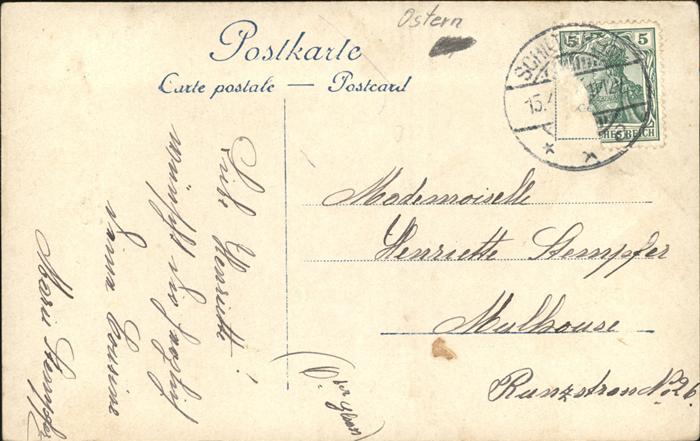 Ostern
Postkarte
Carte postale — Postcard
5 5
SCHIL
15.4
HES REICH
Mademoiselle
Henriette Stempfer
Mulhouse
Runzstrasse No 26.
Liebe Henriette!
wünscht dir herzlich
Cousine
Marie Stempfer